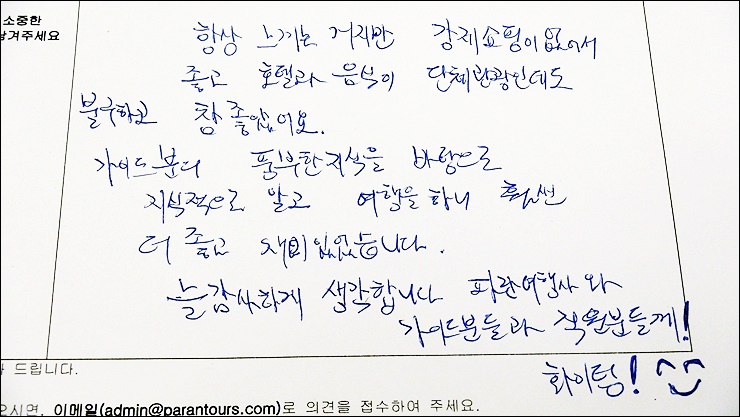 소중한
남겨주세요
항상 느끼는 거지만 강제쇼핑이 없어서
좋고 호텔과 음식이 단체관광인데도
불구하고 참 좋았어요.
가이드분의 풍부한 지식을 바탕으로
지식적으로 알고 여행을 하니 훨씬
더 좋고 재미있었습니다.
늘 감사하게 생각합니다 파란여행사와
가이드분들과 직원분들께!
화이팅! ^^
드립니다.
으시면, 이메일(admin@parantours.com)로 의견을 접수하여 주세요.